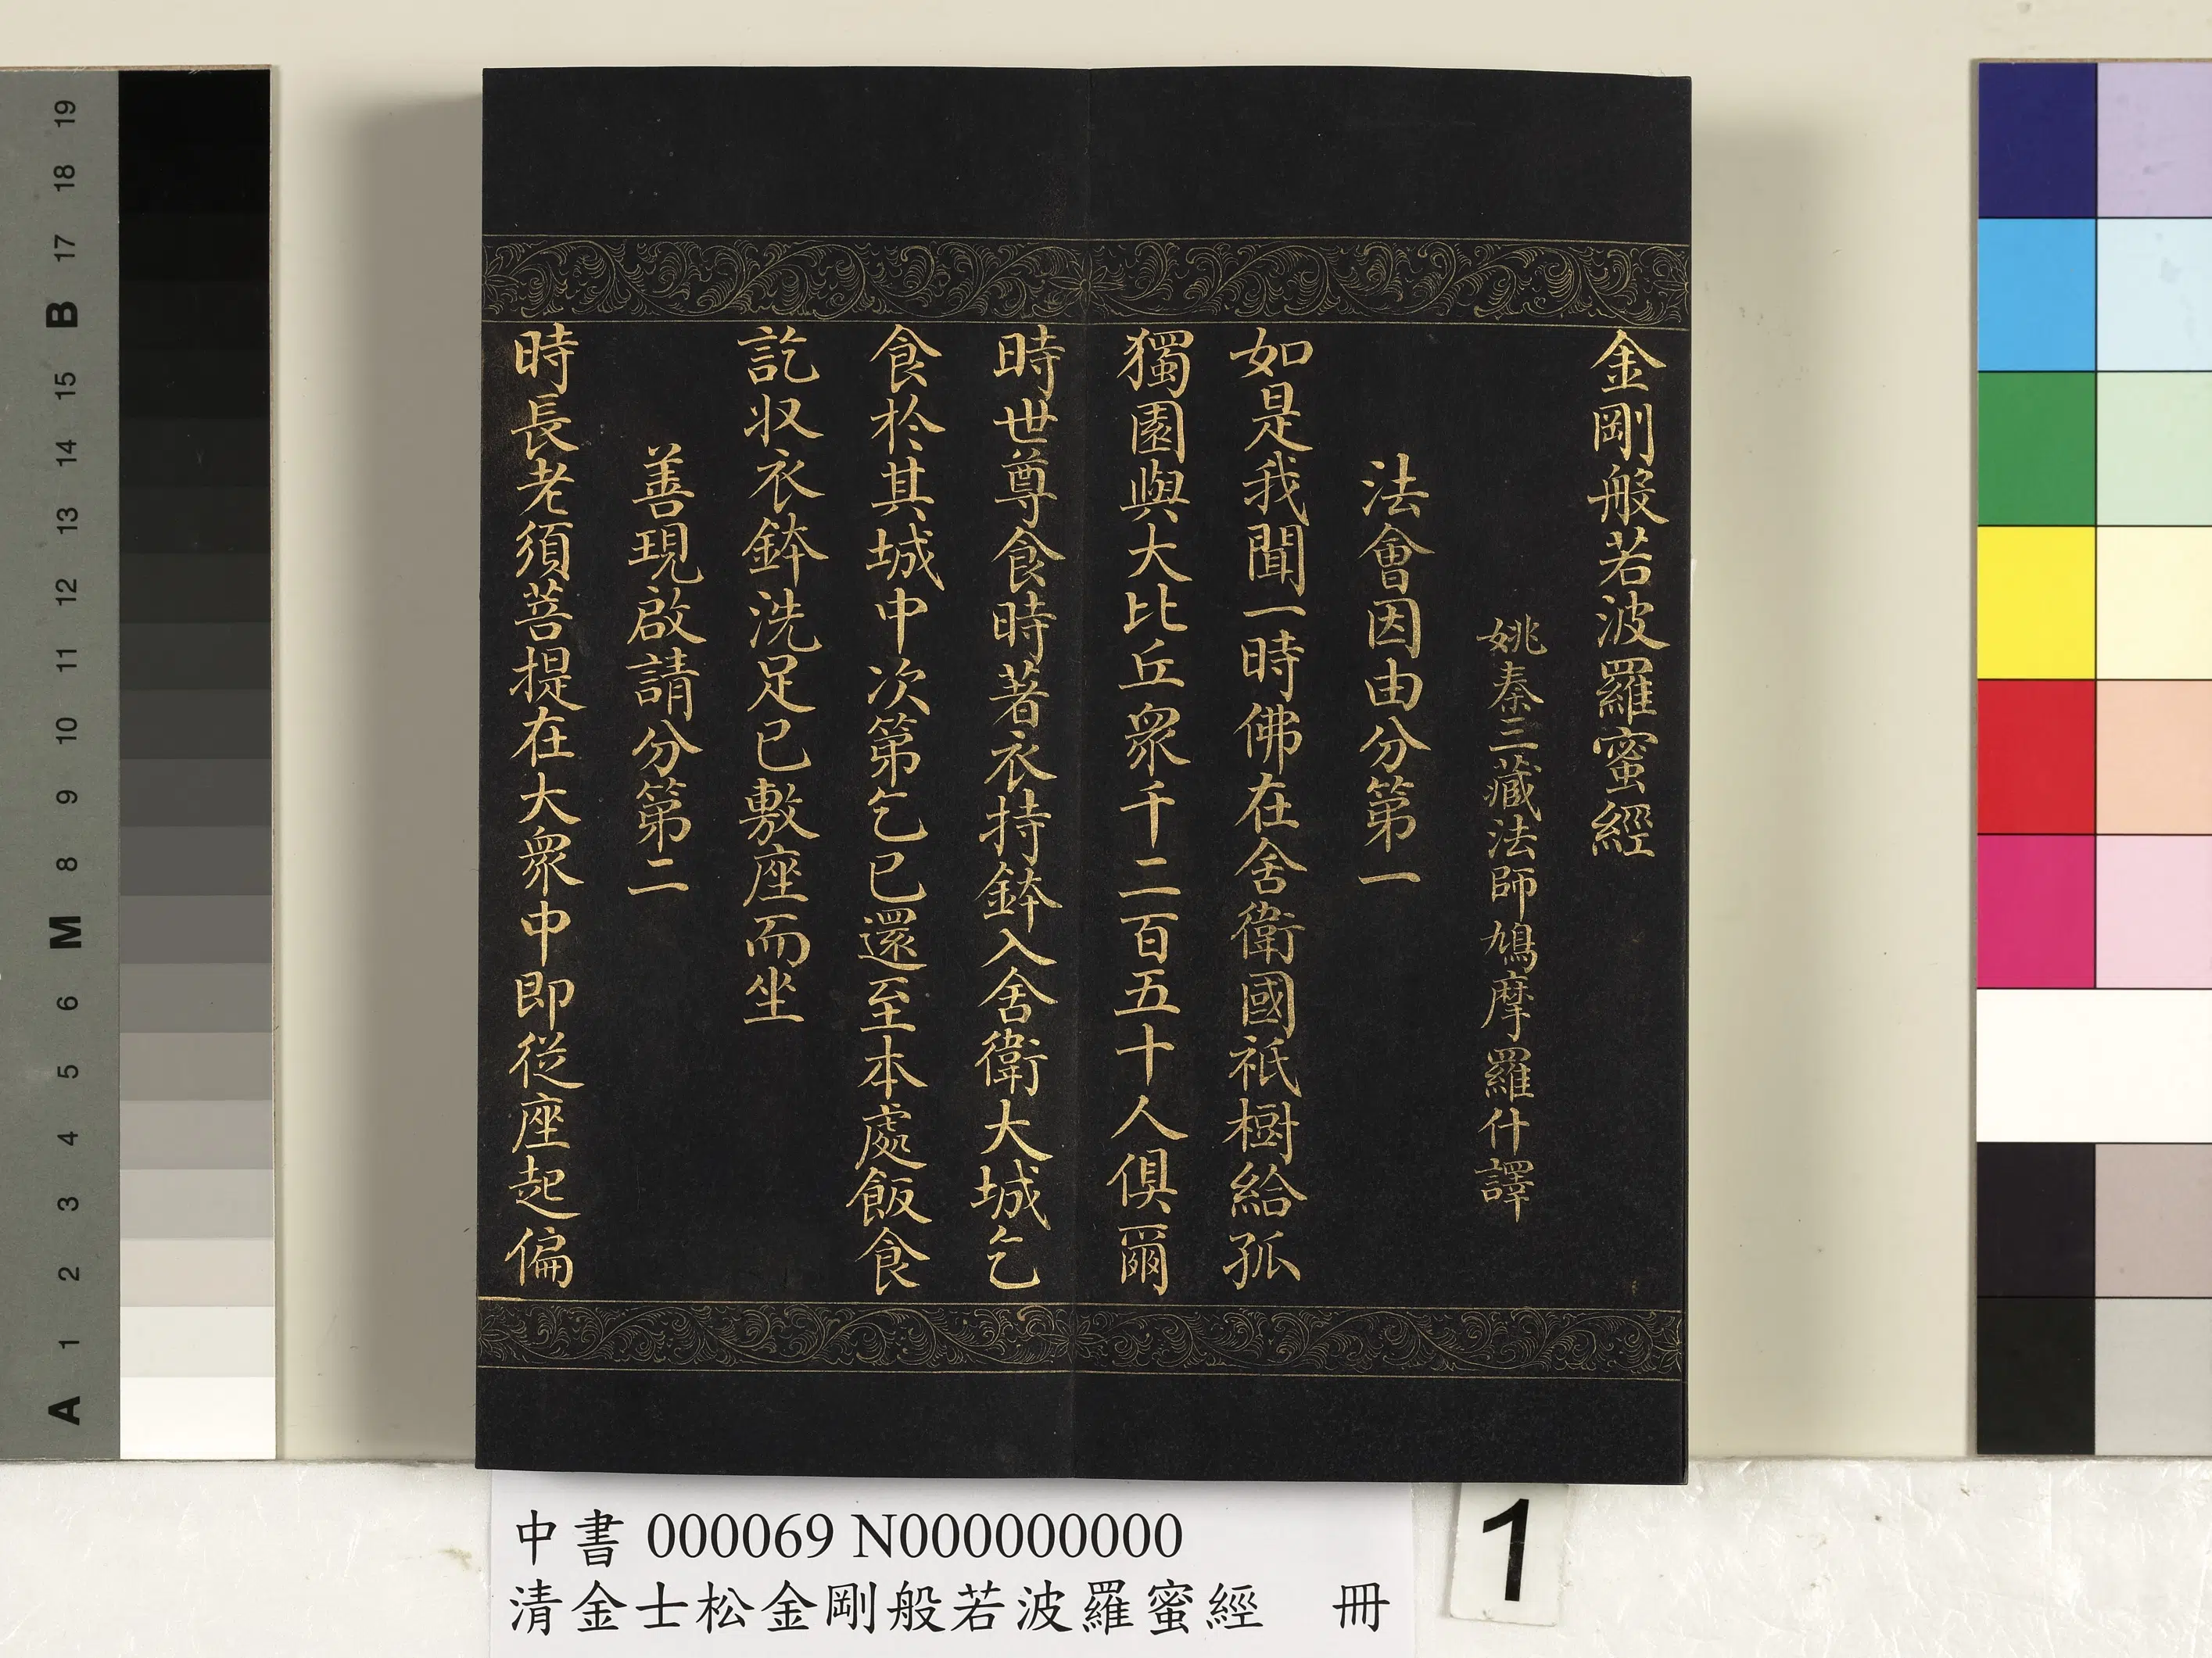 金剛般若波羅蜜經
姚秦三藏法師鳩摩羅什譯
法會因由分第一
如是我聞一時佛在舍衛國祇樹給孤
獨園與大比丘眾千二百五十人俱爾
時世尊食時著衣持鉢入舍衛大城乞
食於其城中次第乞已還至本處飯食
訖収衣鉢洗足已敷座而坐
善現啟請分第二
時長老須菩提在大眾中即從座起偏
中書 000069 N000000000
清金士松金剛般若波羅蜜經 冊
1
A 1 2 3 4 5 6 M 8 9 10 11 12 13 14 15 B 17 18 19